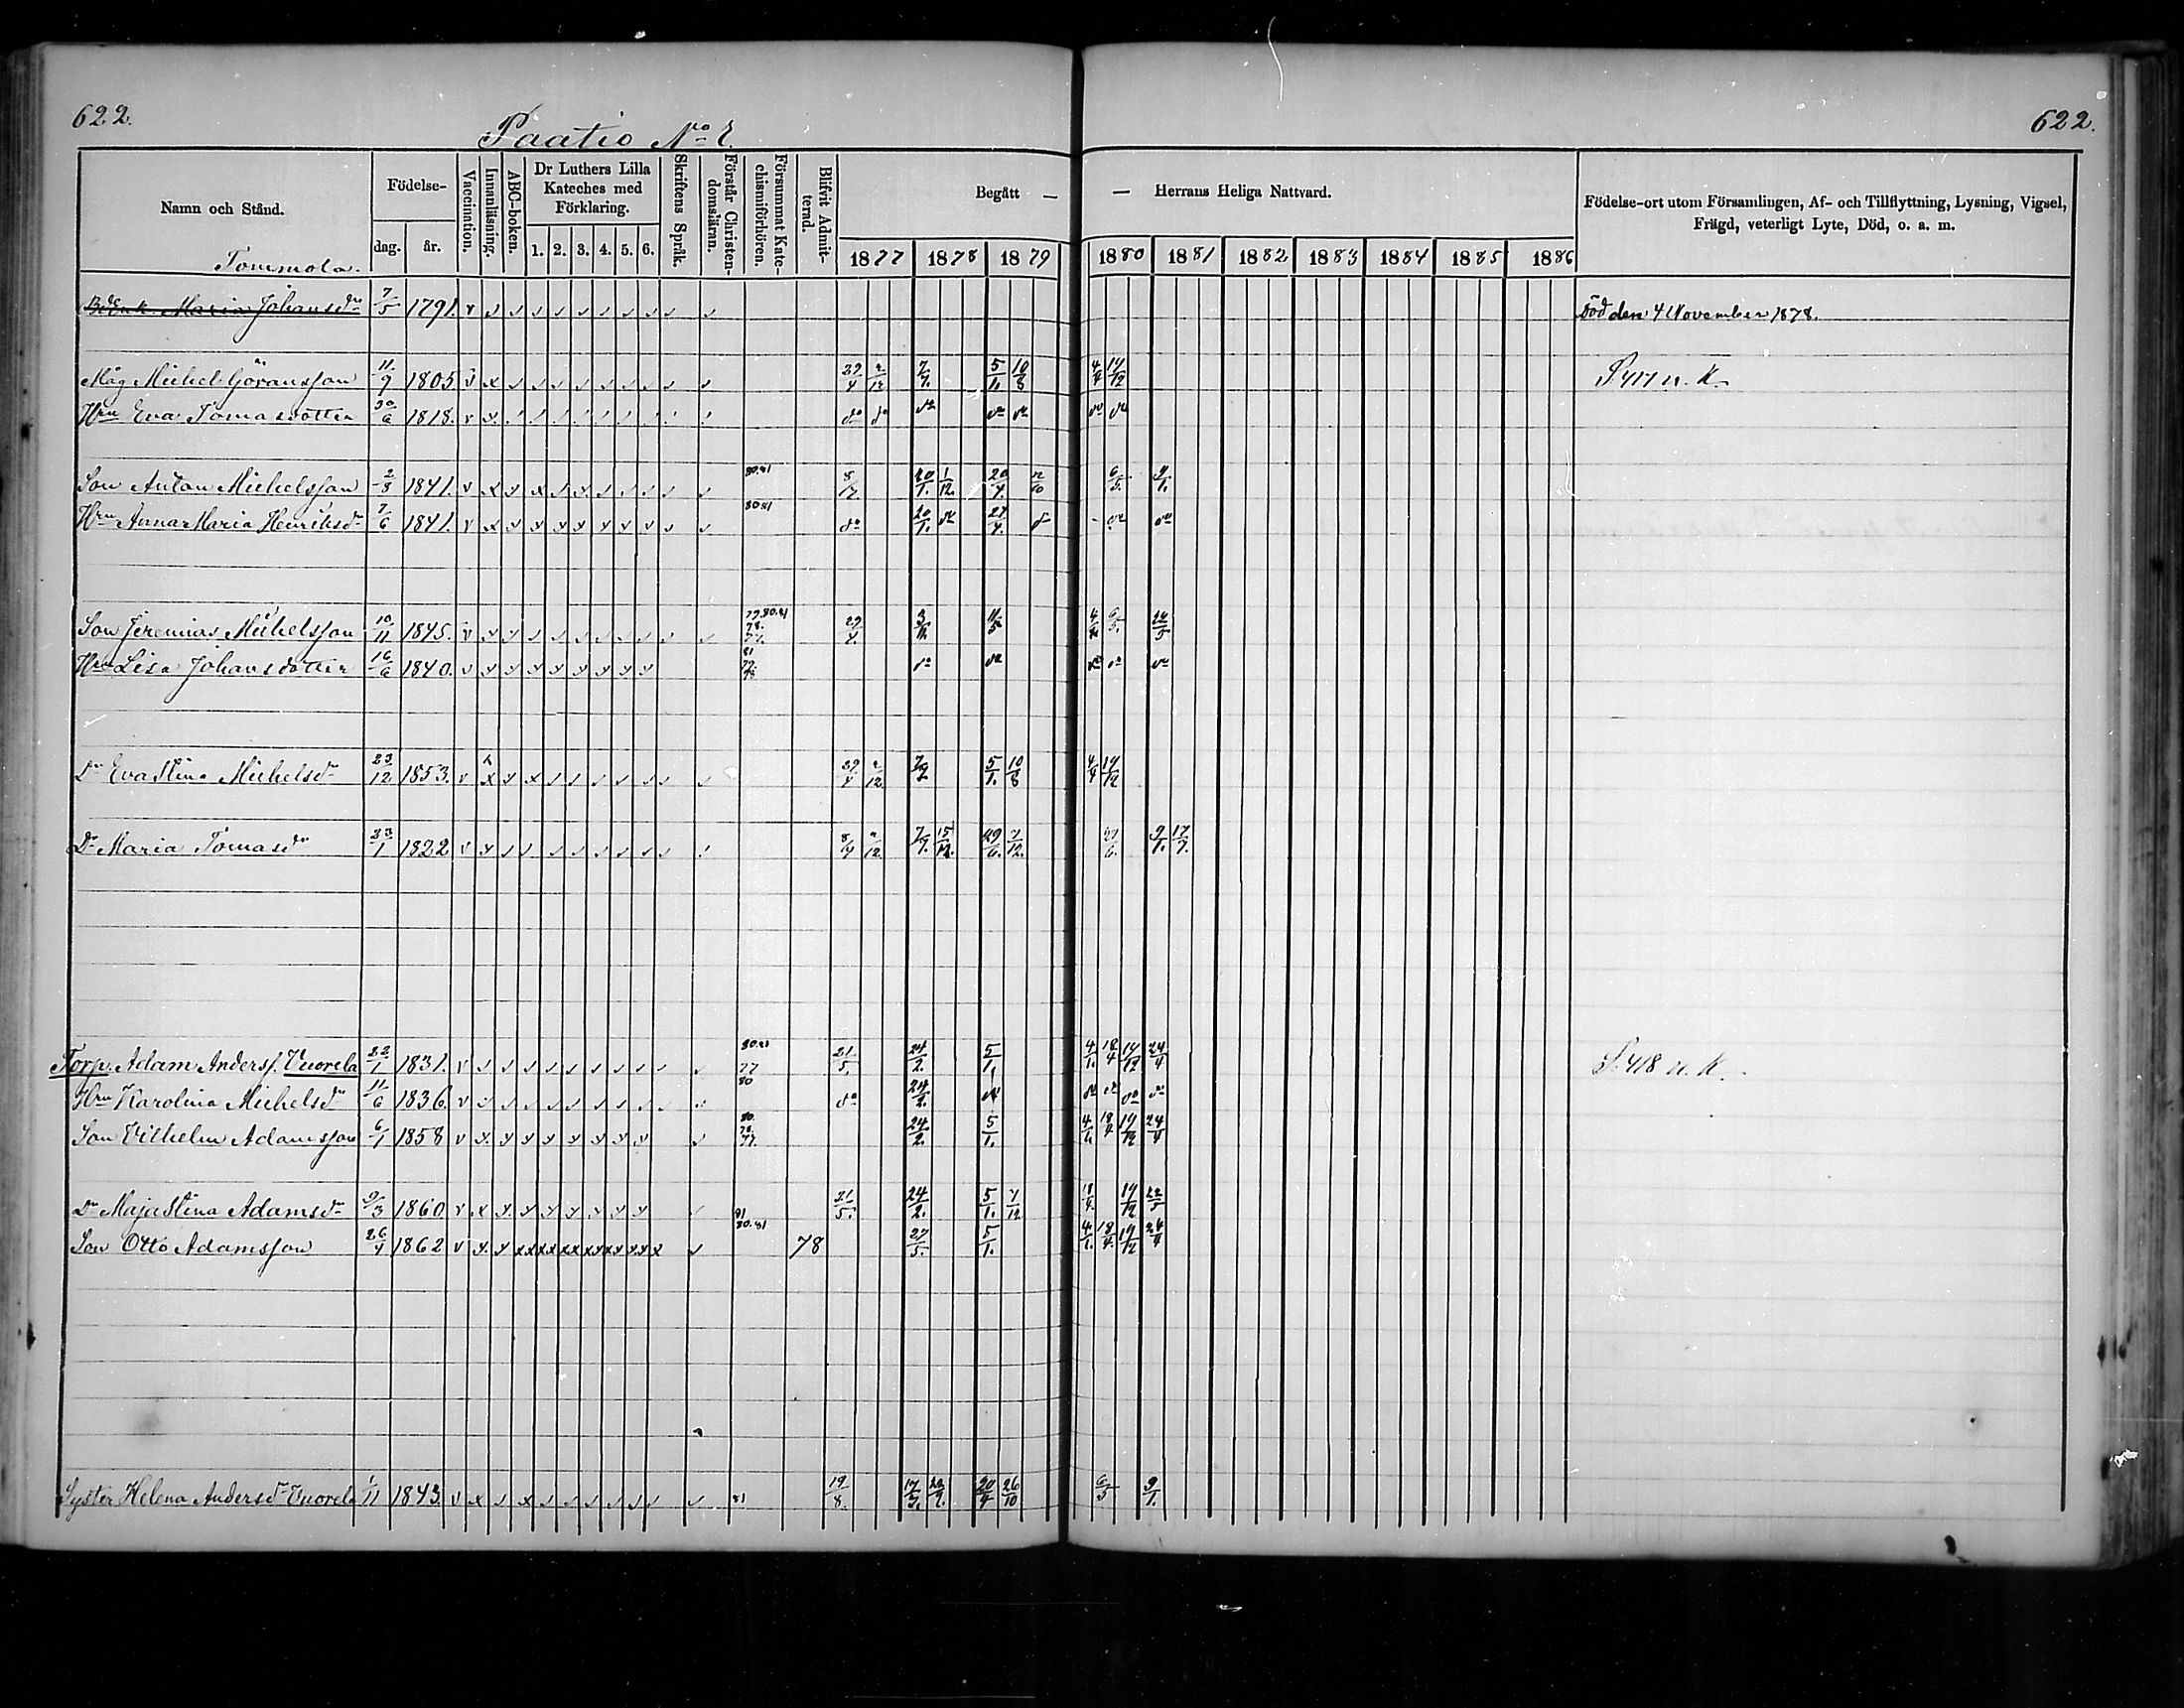 622. 622.
Paatio No
Namn och Stånd. Födelse- dag. år. Vaccination. Innanläsning. ABC-boken. Dr Luthers Lilla Kateches med Förklaring. 1. 2. 3. 4. 5. 6. Skriftens Språk. Förstår Christendomsläran. Försummat Katechismiförhören. Blifvit Admitterad. Begått — — Herrans Heliga Nattvard. Födelse-ort utom Församlingen, Af- och Tillflyttning, Lysning, Vigsel, Frägd, veterligt Lyte, Död, o. a. m.
1877 1878 1879 1880 1881 1882 1883 1884 1885 1886
Tommola.
Maria Johansdr 7/5 1791. död den 4 November 1878.
Måg Michel Göransson 11/9 1805 29/4 2/12 7/7. 5/1. 10/8 4/4 19/12 S. 417 n. K.
Hru Eva Tomasdotter 30/6 1818. do do do do do do do
80.81
Son Anton Michelsson 2/8 1841. 20/1. 1/12. 20/4. 6/5. 9/1.
80 81
Hru Anna Maria Henriksdr 7/6 1841. do 20/1. do 27/4. do do do
79 80.81
78.
77.
Son Jeremias Michelsson 10/11 1845. 29/4. 11/5 6/5. 22/5
Hru Lisa Johansdotter 16/6 1840. 81 do do do do do
Dr Eva Stina Michelsdr 23/12 1853. 29/4 2/12 7/7 5/1. 10/8 4/4 19/12
Dr Maria Tomasdr 23/1 1822 2/12 7/7. 15/12. 29/6. 7/12. 27/6. 9/1. 17/7.
80.81
Torp. Adam Anderss. Vuorela 22/1 1831. 77 21/5. 24/2. 5/1. 4/1. 18/4 19/12 24/4 S. 418 n. K.
80
Hru Karolina Michelsdr 11/6 1836. do 24/2. do do do do do
80.
78.
77.
Son Vilhelm Adamsson 6/1 1858 24/2. 5/1. 18/4 19/12 24/4
Dr Maja Stina Adamsdr 9/3 1860 81 21/5. 24/2. 5/1. 7/12 18/4. 19/12 22/5
80.81
Son Otto Adamsson 26/4 1862 78 27/5. 5/1. 4/1. 18/4. 19/12 24/4
Syster Helena Andersdr Vuorela 1/11 1843. 81 19/8. 17/3. 20/4 26/10 6/5 9/1.